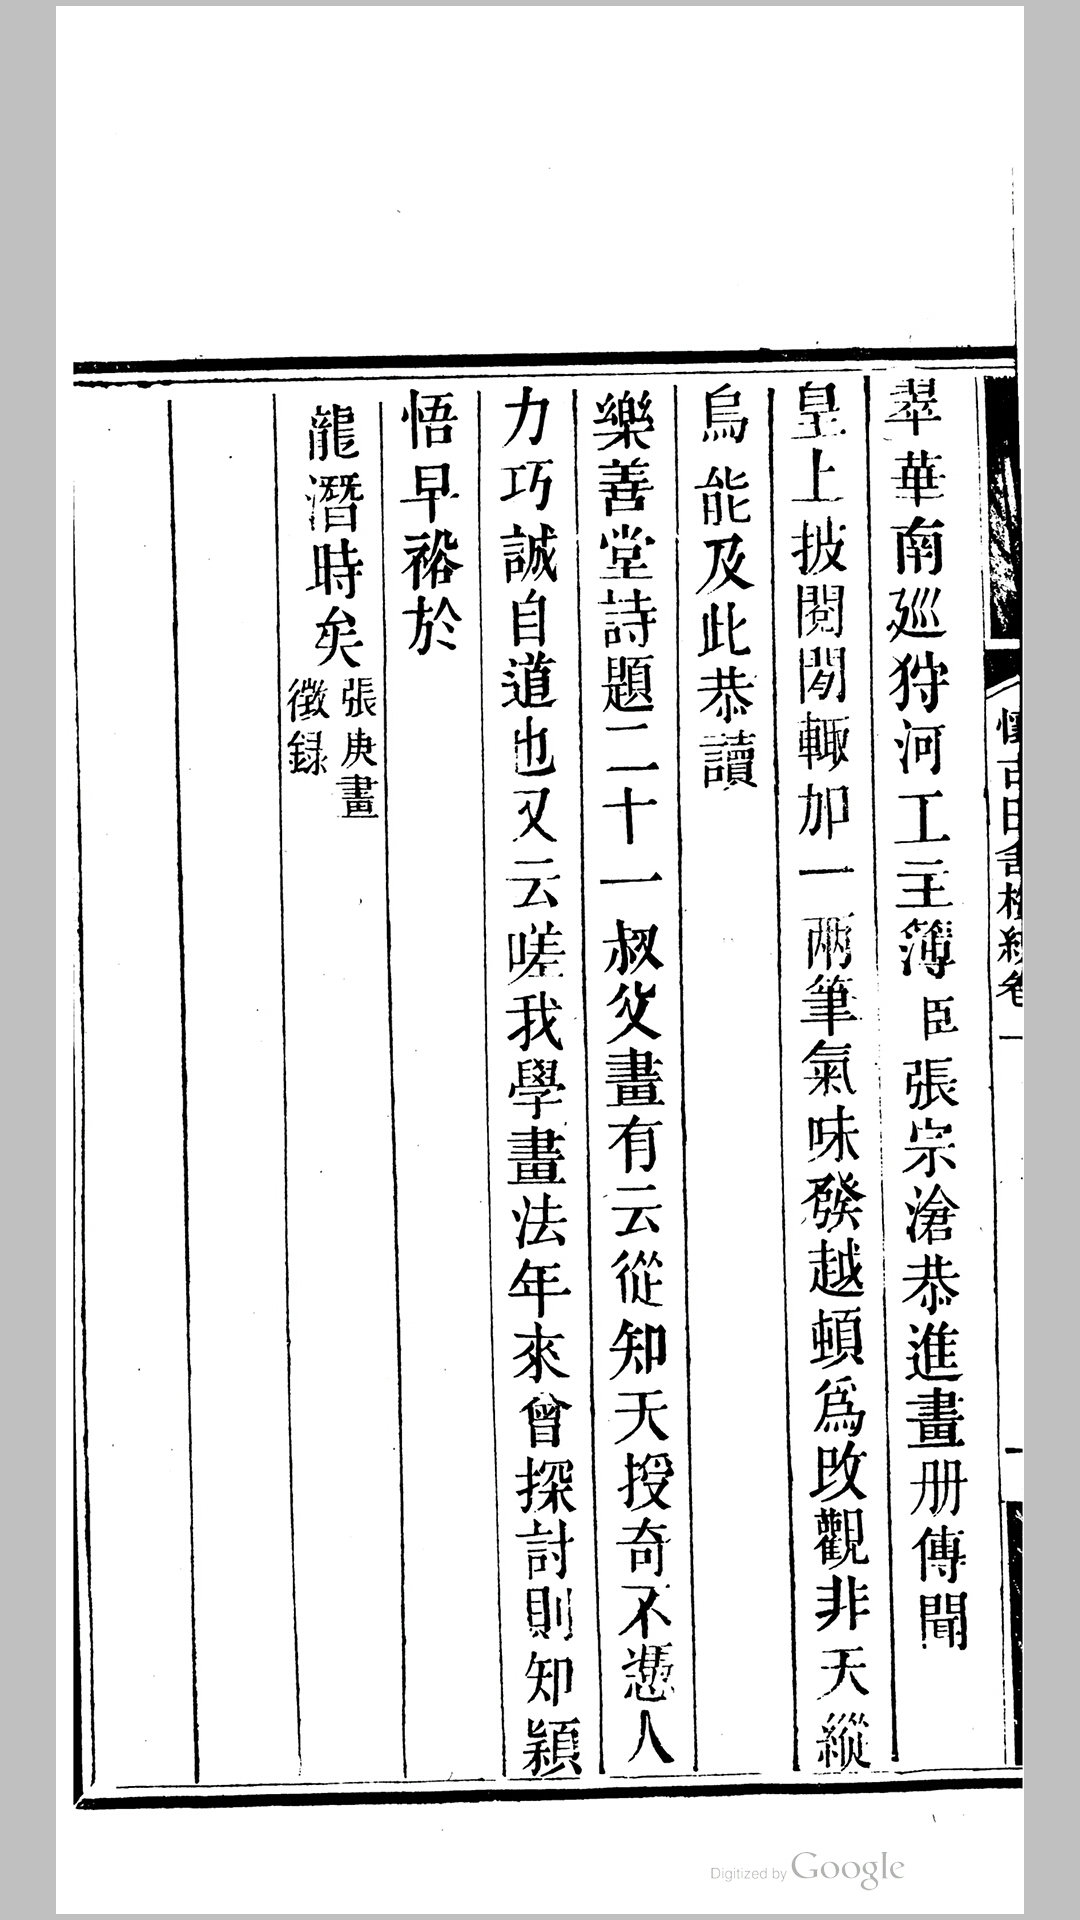 翠華南廵狩河工主簿臣張宗滄恭進畫册傳聞
皇上披閱閒輙加一兩筆氣味發越頓爲攺觀非天縱
烏能及此恭讀
樂善堂詩題二十一叔父畫有云從知天授奇不憑人
力巧誠自道也又云嗟我學畫法年來曾探討則知穎
悟早裕於
龍潛時矣張庚畫
徵録
Digitized by Google